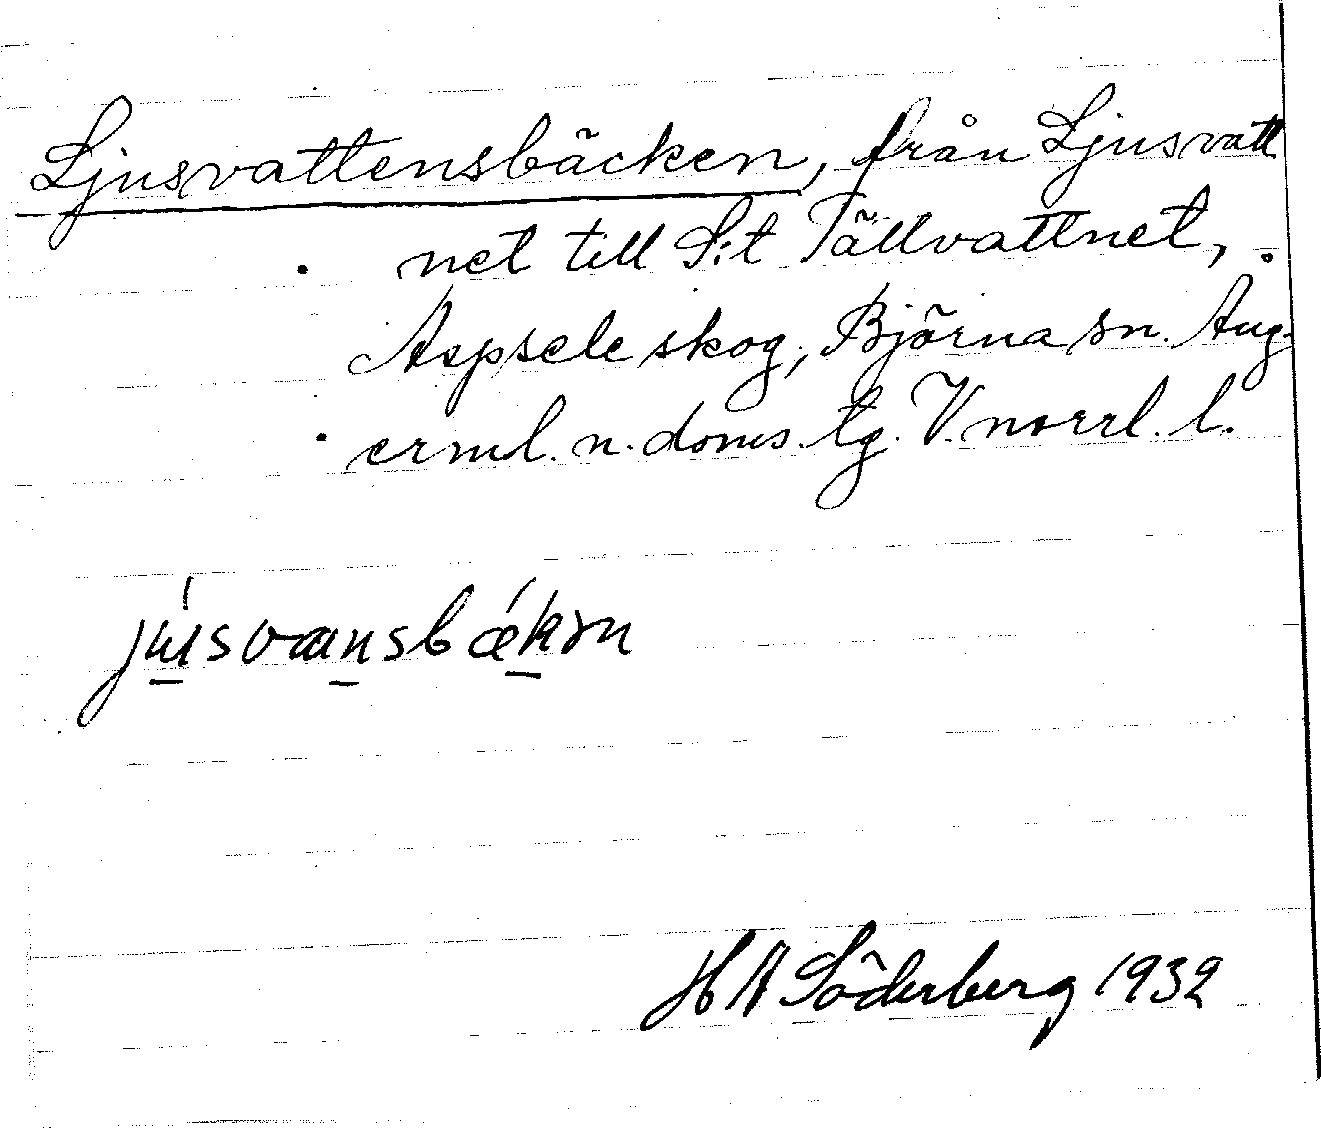 Ljusvattensbäcken, från Ljusvatt
net till S:t Tällvattnet,
Aspsele skog, Björna sn. Ång-
erml. n. doms. tg. V. norrl. l.
júsvansbǽkən
H A Söderberg 1932